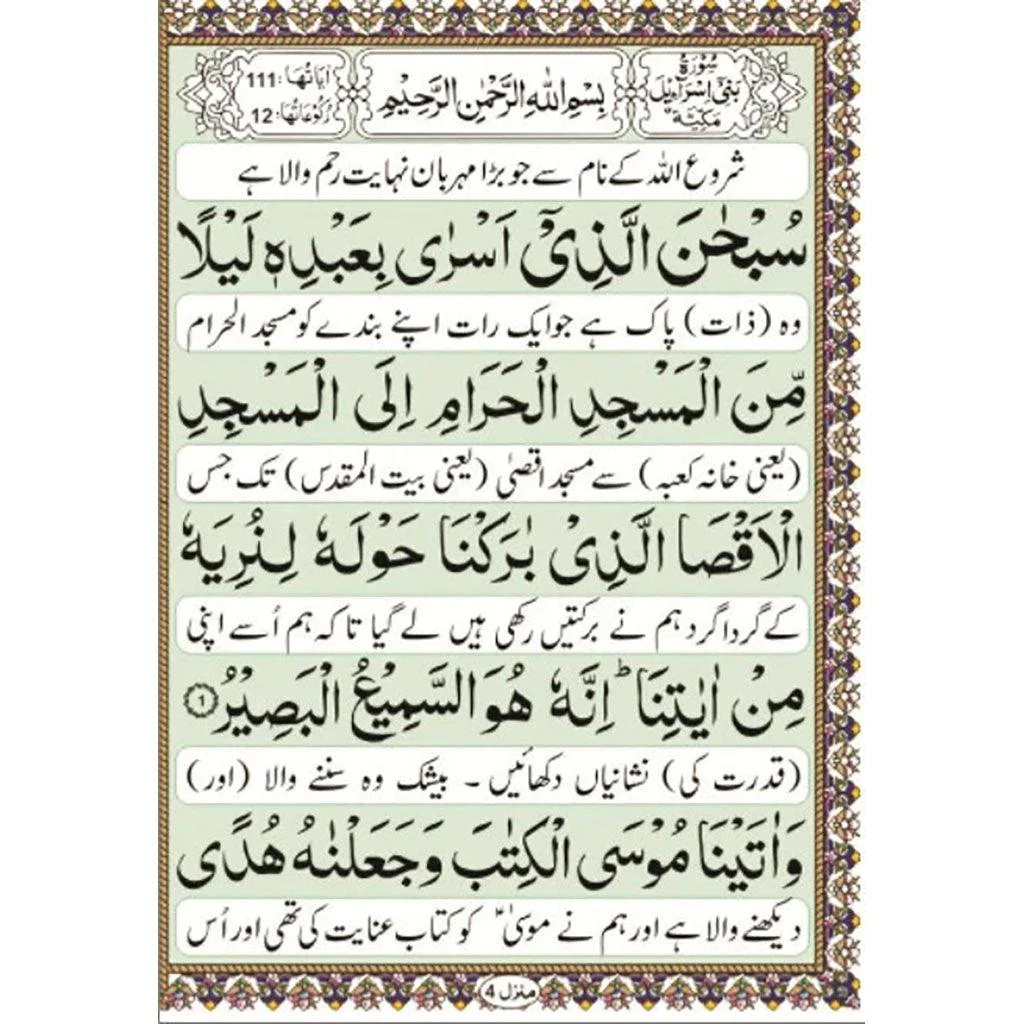 سُوْرَةُ
بَنِیْٓ اِسْرَآءِیْلَ
مَکِّیَّةٌ
بِسْمِ اللّٰهِ الرَّحْمٰنِ الرَّحِیْمِ
اٰیَاتُهَا: 111
رُکُوْعَاتُهَا: 12
شروع اللہ کے نام سے جو بڑا مہربان نہایت رحم والا ہے
سُبْحٰنَ الَّذِیْۤ اَسْرٰی بِعَبْدِهٖ لَیْلًا
وہ (ذات) پاک ہے جو ایک رات اپنے بندے کو مسجد الحرام
مِّنَ الْمَسْجِدِ الْحَرَامِ اِلَی الْمَسْجِدِ
(یعنی خانہ کعبہ) سے مسجد اقصیٰ (یعنی بیت المقدس) تک جس
الْاَقْصَا الَّذِیْ بٰرَکْنَا حَوْلَهٗ لِنُرِیَهٗ
کے گردا گرد ہم نے برکتیں رکھی ہیں لے گیا تا کہ ہم اُسے اپنی
مِنْ اٰیٰتِنَا ؕ اِنَّهٗ هُوَ السَّمِیْعُ الْبَصِیْرُ ۱
(قدرت کی) نشانیاں دکھائیں۔ بیشک وہ سننے والا (اور)
وَاٰتَیْنَا مُوْسَی الْکِتٰبَ وَجَعَلْنٰهُ هُدًی
دیکھنے والا ہے اور ہم نے موسیٰؑ کو کتاب عنایت کی تھی اور اُس
منزل 4